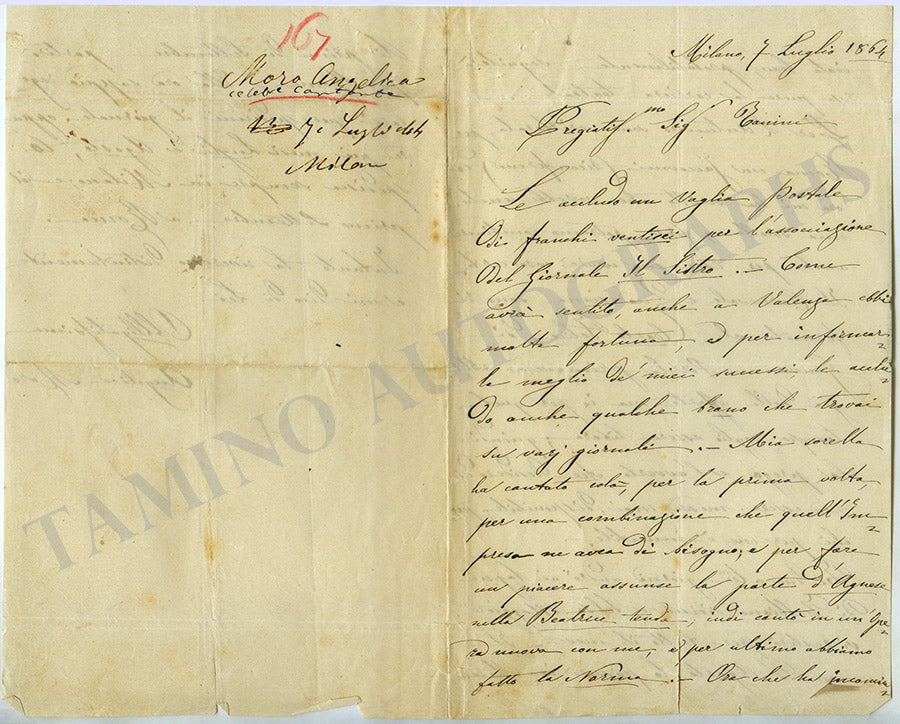 167
Moro Angelica
celebre cantante
7 Luglio 64
Milano
Milano, 7 Luglio 1864
Pregiatis.mo Sigr Zanini
Le accludo un Vaglia postale
di franchi ventisei per l'associazione
del Giornale Il Sistro .- Come
avrà sentito, anche a Valenza ebbi
molta fortuna, e per informar=
la meglio de' miei successi, le acclu=
do anche qualche brano che trovai
su varj giornali .- Mia sorella
ha cantato colà, per la prima volta,
per una combinazione che quell'Im=
presa ne avea di bisogno, e per fare
un piacere assunse la parte d'Agnese
nella Beatrice tenda, indi cantò in un'Ope=
ra nuova con me, e per ultimo abbiamo
fatto la Norma .- Ora che ha incomin=
TAMINO AUTOGRAPHS